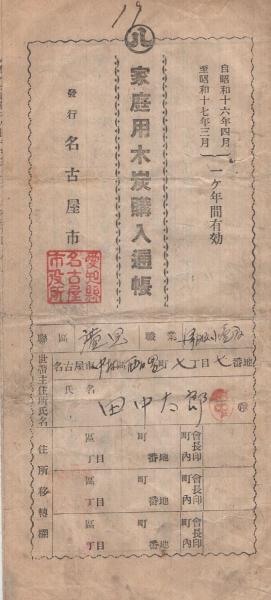 19
八
自昭和十六年四月
至昭和十七年三月
一ケ年間有効
家庭用木炭購入通帳
發行 名古屋市
愛知縣
名古屋
市役所
聯區
職業
世帶主住所氏名
名古屋市 區 町七丁目七番地
氏名
田中太郎
住所移轉欄
區 町 町內會長印
丁目 番地
區 町 町內會長印
丁目 番地
區 町 町內會長印
丁目 番地